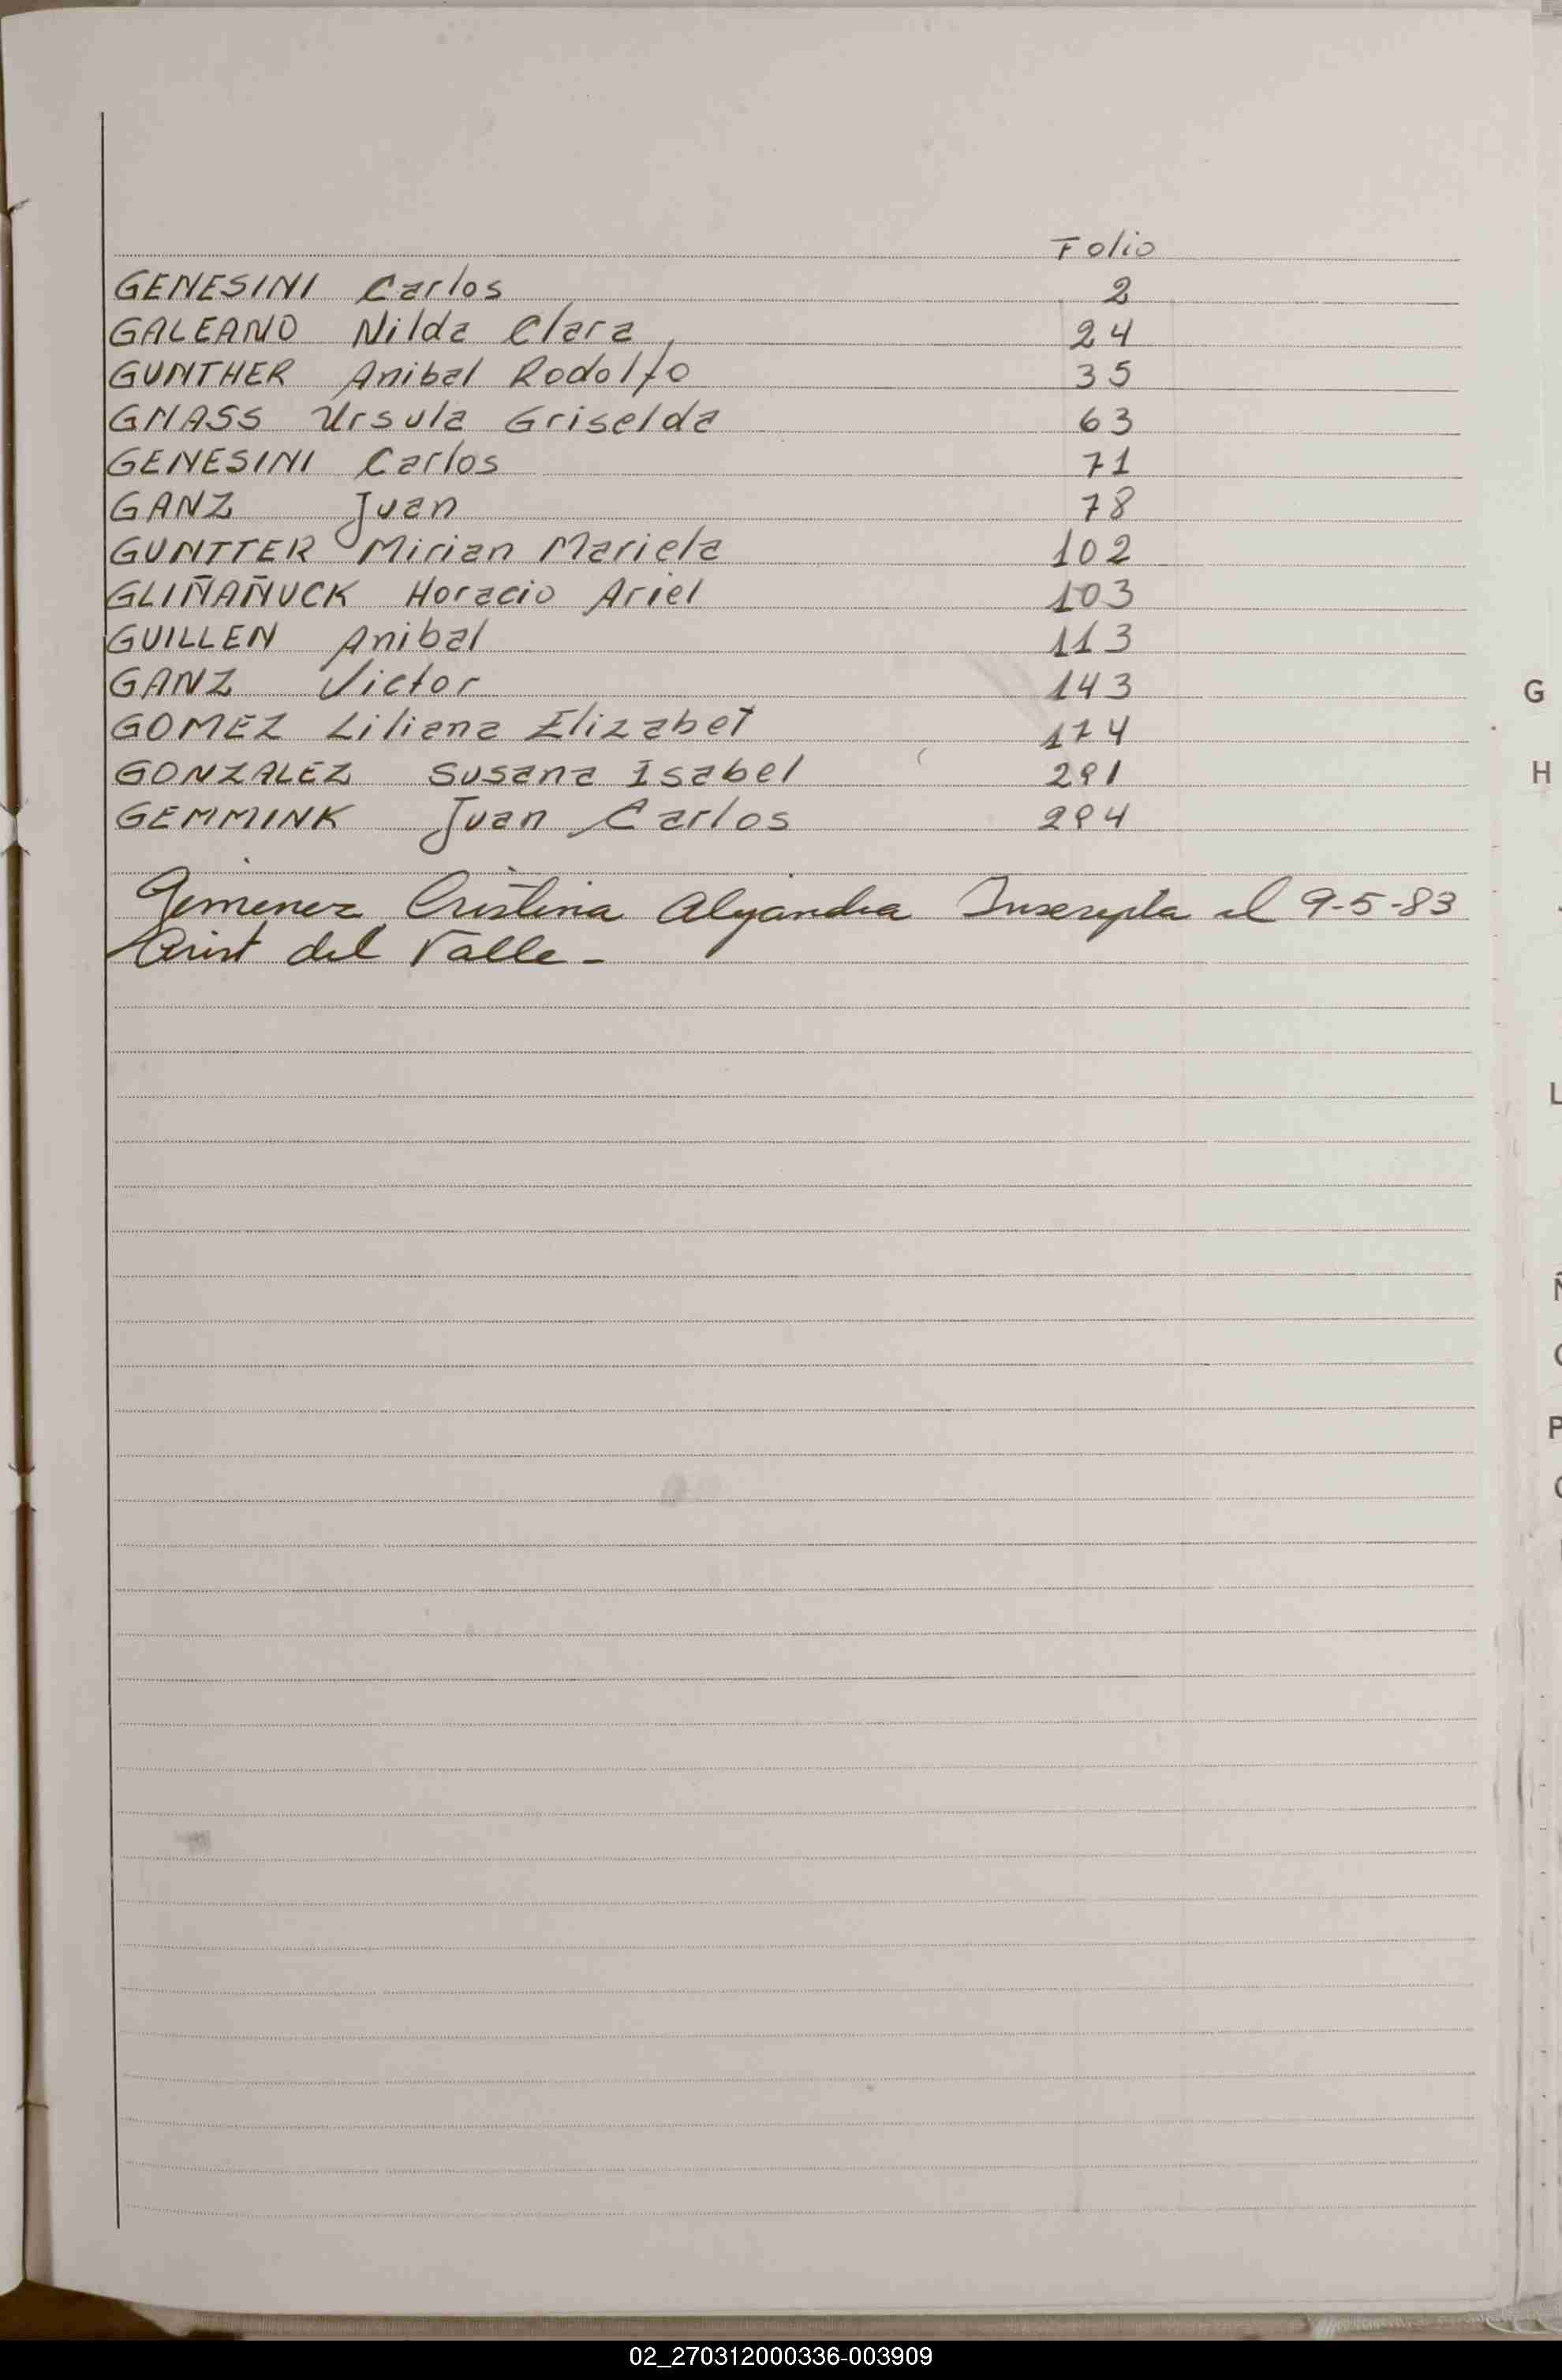 Folio
GENESINI Carlos 2
GALEANO Nilda Clara 24
GUNTHER Anibal Rodolfo 35
GNASS Ursula Griselda 63
GENESINI Carlos 71
GANZ Juan 78
GUNTTER Mirian Mariela 102
GLIÑAÑUCK Horacio Ariel 103
GUILLEN Anibal 113
GANZ Victor 143
GOMEZ Liliana Elizabet 174
GONZALEZ Susana Isabel 291
GEMMINK Juan Carlos 294
Gimenez Cristina Alejandra Inscripta el 9-5-83
Arist del Valle -
G
H
L
Ñ
P
02_270312000336-003909